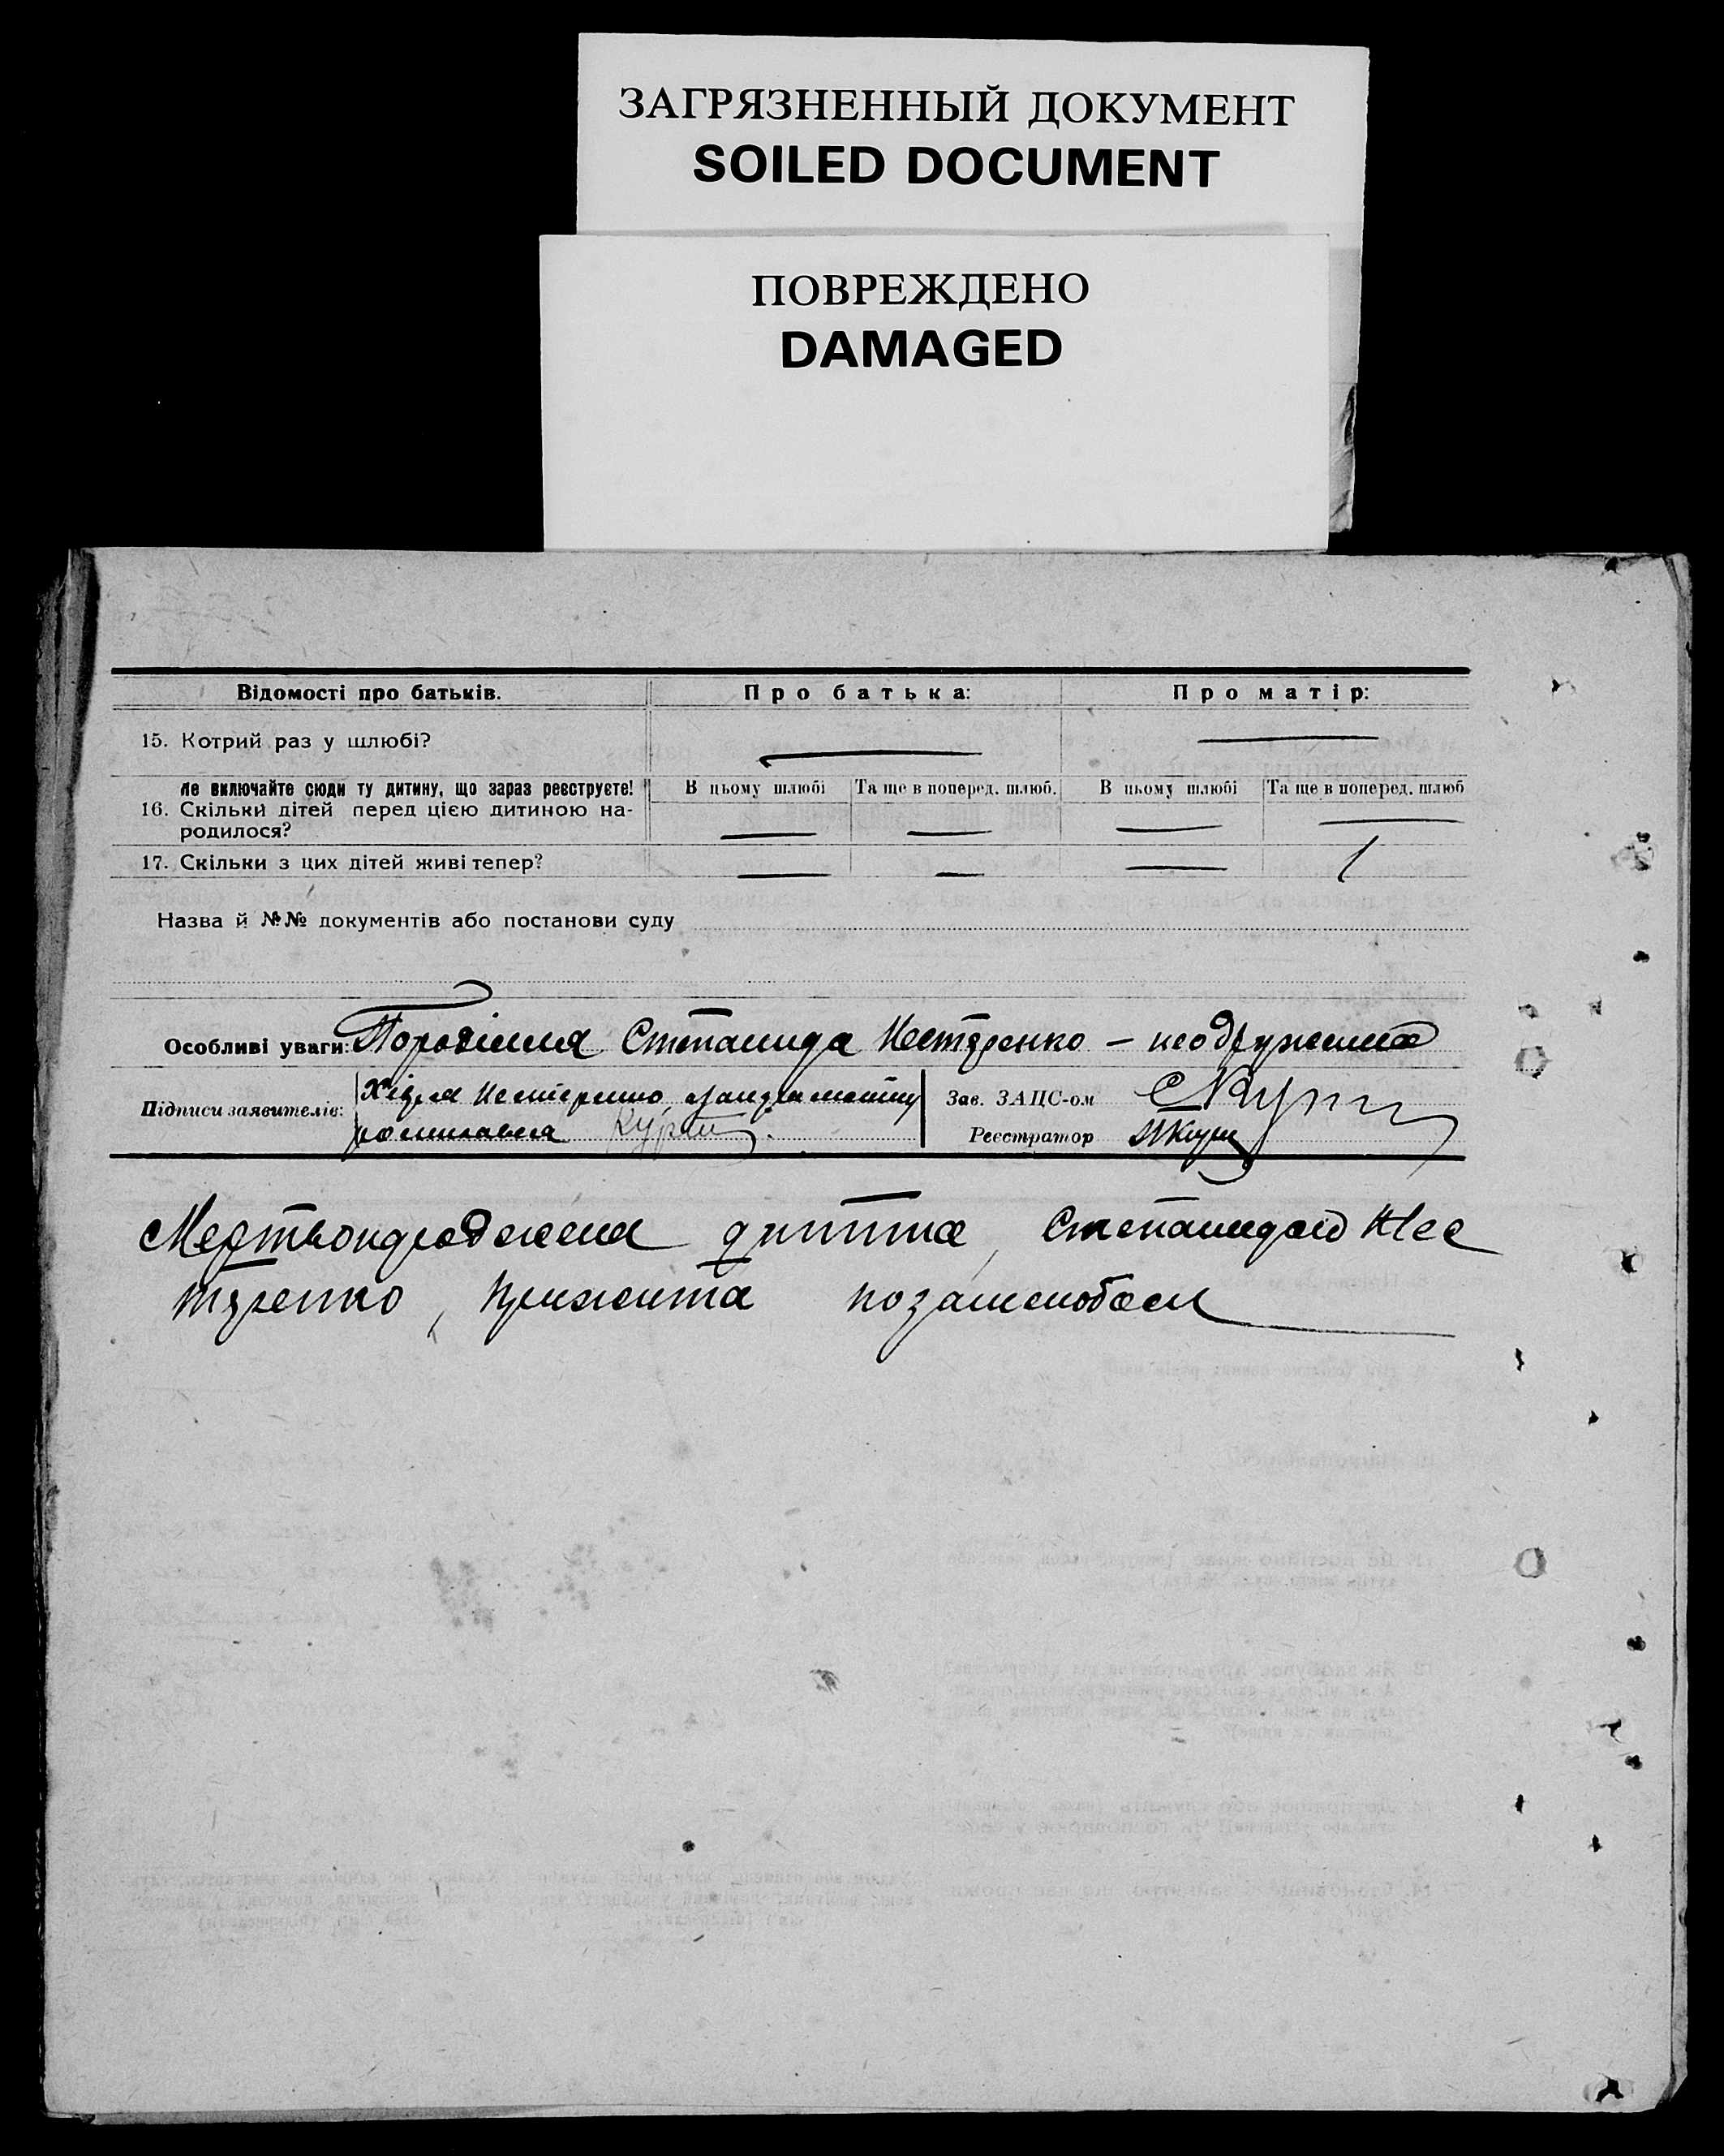 ЗАГРЯЗНЕННЫЙ ДОКУМЕНТ
SOILED DOCUMENT
ПОВРЕЖДЕНО
DAMAGED
Відомості про батьків. Про батька: Про матір:
15. Котрий раз у шлюбі?
Не включайте сюди ту дитину, що зараз реєструєте! В цьому шлюбі Та ще в поперед. шлюб. В цьому шлюбі Та ще в поперед. шлюб
16. Скільки дітей перед цією дитиною на-
родилося?
17. Скільки з цих дітей живі тепер? 1
Назва й №№ документів або постанови суду
Особливі уваги: Степанида Нестеренко — неодружена
Підписи заявителів: Нестеренко Зав. ЗАЦС-ом
Реєстратор
дитина, Степанидою Нес
теренко, прижита позашлюбом